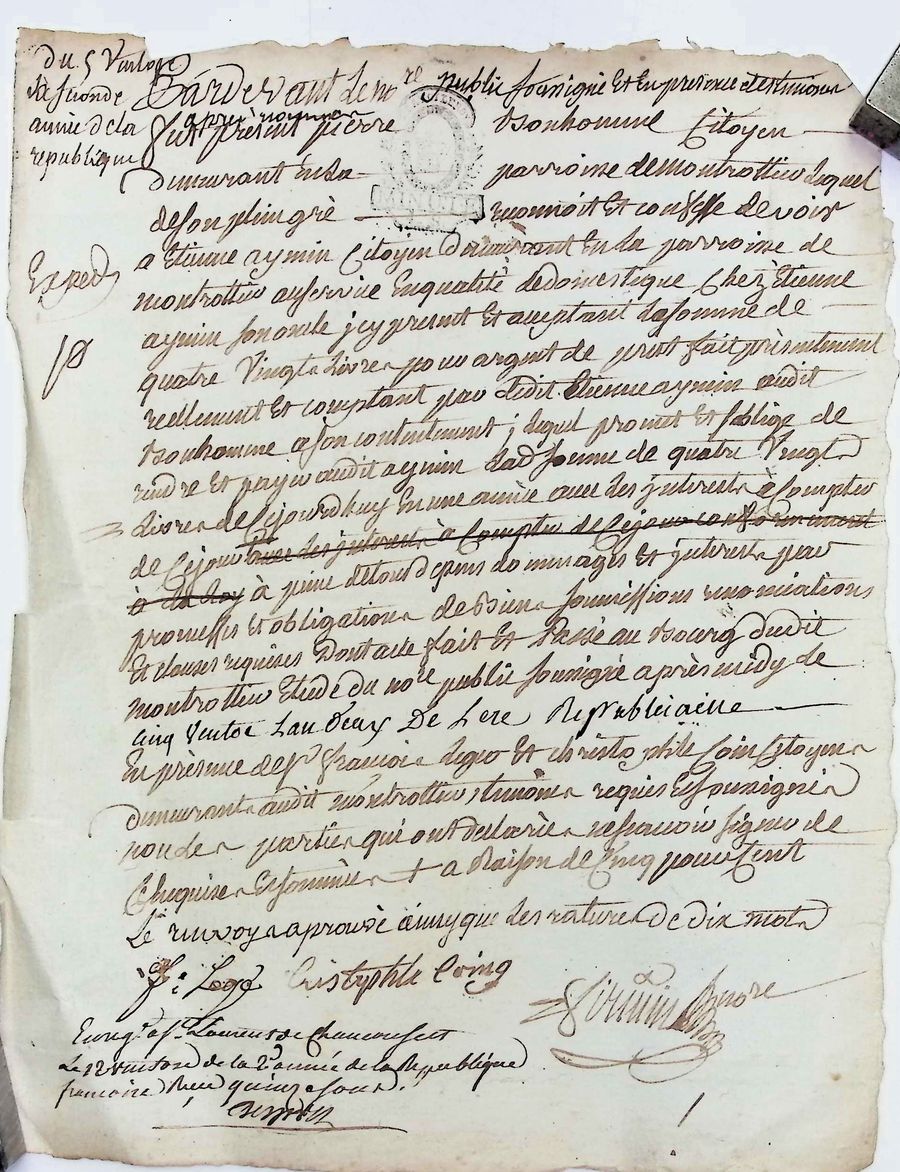 du 5 Ventose
la seconde
année de la
republique
Exped
Pardevant le nore public soussigné Et En presence des temoins
apres nommes
Fut present pierre Bonhomme Citoyen
demeurant En la parroisse de montrottier lequel
de son plein gré reconnoit Et confesse devoir
a Etienne aymin Citoyen demeurant En la parroisse de
montrottier au service En qualité de domestique Chez Etienne
aymin son oncle jcy present Et acceptant la somme de
quatre Vingt Livres pour argent de prest fait présentement
réellement Et comptant par ledit Etienne aymin audit
Bonhomme a son contentement ; lequel promet Et s'oblige de
rendre Et payer audit aymin lad somme de quatre Vingt
Livres de Cejourdhuy En une année avec les jnterests à Compter
de Cejour avec les jnterests à Compter de Cejour conformement
à la loy à peine de tous depens domages Et jnterests par
promesses Et obligations de Biens soumissions renonciations
Et clauses requises Dont acte fait Et Passé au Bourg dudit
montrottier Etude du nore public soussigné après midy le
cinq Ventose L'an deux De L'ere Republicaine
En présence de sr François Loge Et christophle Coin Citoyens
demeurants audit montrottier, temoins requis Et soussignés
non les parties qui ont déclarées ne sçavoir signer de
Ce requises Et sommées + a Raison de Cinq pour Cent
Le renvoy aprouvé ainsy que les ratures de dix mots
fs Loge Cristophle Coing
Enregé a St Laurent de Chamousset
Le 12 ventose de la 2e année de la Republique
francaise Recu quinze sous